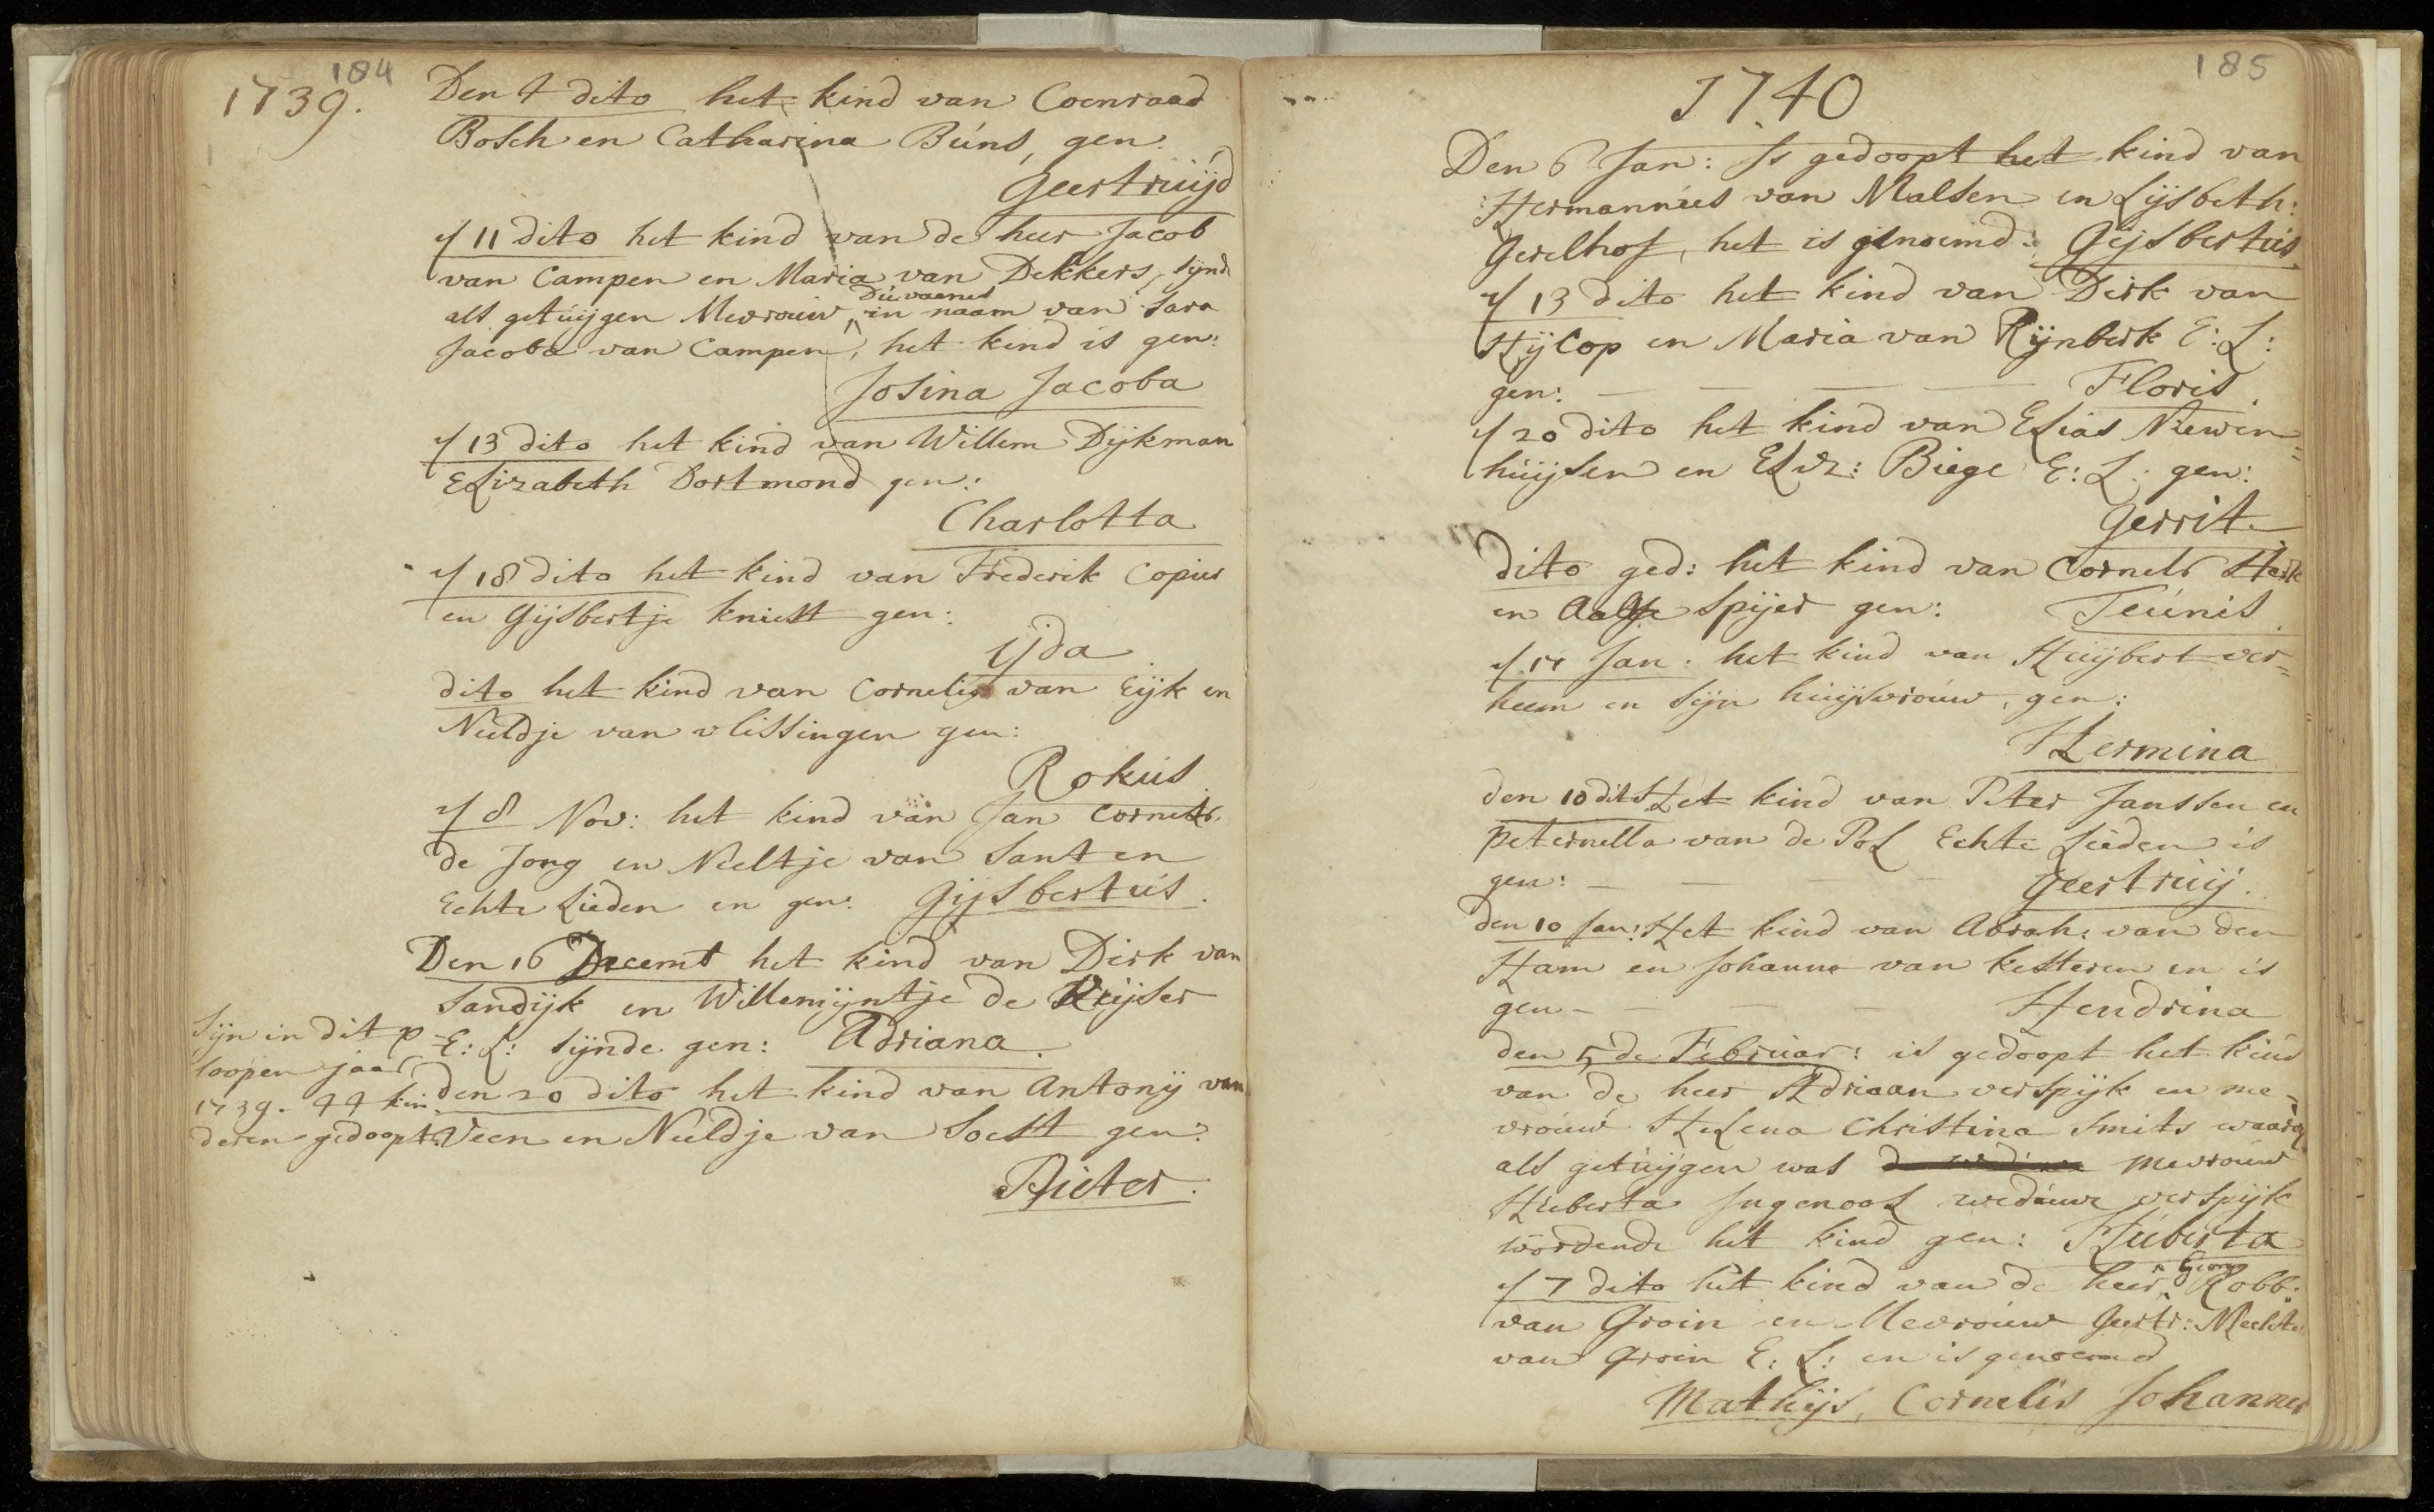 184
1739.
Den 4 dito het kind van Coenraad
Bosch en Catharina Búns, gen:
Geertruijd
11 dito het kind van de heer Jacob
van Campen en Maria van Dekkers, sijnd
als getúijgen Mevrouw, in naam van Sara
Jacoba van Campen, het kind is gen:
Josina Jacoba
13 dito het kind van Willem Dijkman
Elizabeth Dortmond gen:
Charlotta
18 dito het kind van Frederik Copius
en Gijsbertje kniest gen:
ijda
dito het kind van Cornelis van Eijk en
Neeldje van vlissingen gen:
Rokús
8 Nov: het kind van Jan Cornels
de Jong en Neeltje van Santen
Echte Lieden en gen: Gijsbertús.
Den 16 Decemt het kind van Dirk van
Sandijk en Willemijntje de Keijser
E: L: sijnde gen: Adriana.
den 20 dito het kind van Antonij van
Veen en Neeldje van Soest gen:
Pieter.
Sijn in dit
loopen jaar
1739. 44 kin
deren gedoopt.
185
1740
Den 6 Jan: Is gedoopt het kind van
Hermannus van Malsen en Lijsbeth:
Gerelhof, het is genoemd: Gijsbertús
13 dito het kind van Dirk van
Hijcop en Maria van Rijnberk E: L:
gen: — — — Floris.
20 dito het kind van Elias Niewen=
húijsen en Eliz: Biege E: L: gen:
Gerrit
dito ged: het kind van Cornels
en Aaltje Spijer gen: Teúnis.
Jan: het kind van Huijbert ver=
heem en sijn húijsvrouw, gen:
Hermina
den 10 dit Het kind van Peter Janssen en
peternella van de Pol Echte Lieden is
gen: — — — Geertruij.
den 10 Jan: Het kind van Abrah: van den
Ham en Johanna van kesteren en is
gen - — — — Hendrina
den 5 de Februar: is gedoopt het kind
van de heer Adriaan verspijk en me-
vroúw Helena Christina Smits waar
als getúijgen was mevroúw
Húberta Ingenool wedúwe verspijk
wordende het kind gen: Húberta
7 dito het kind van de heer, George Robb:
van Groin en Mevroúw Geertr: Mecht
van Groin E: L: en is genoemd
Mathijs, Cornelis Johannes